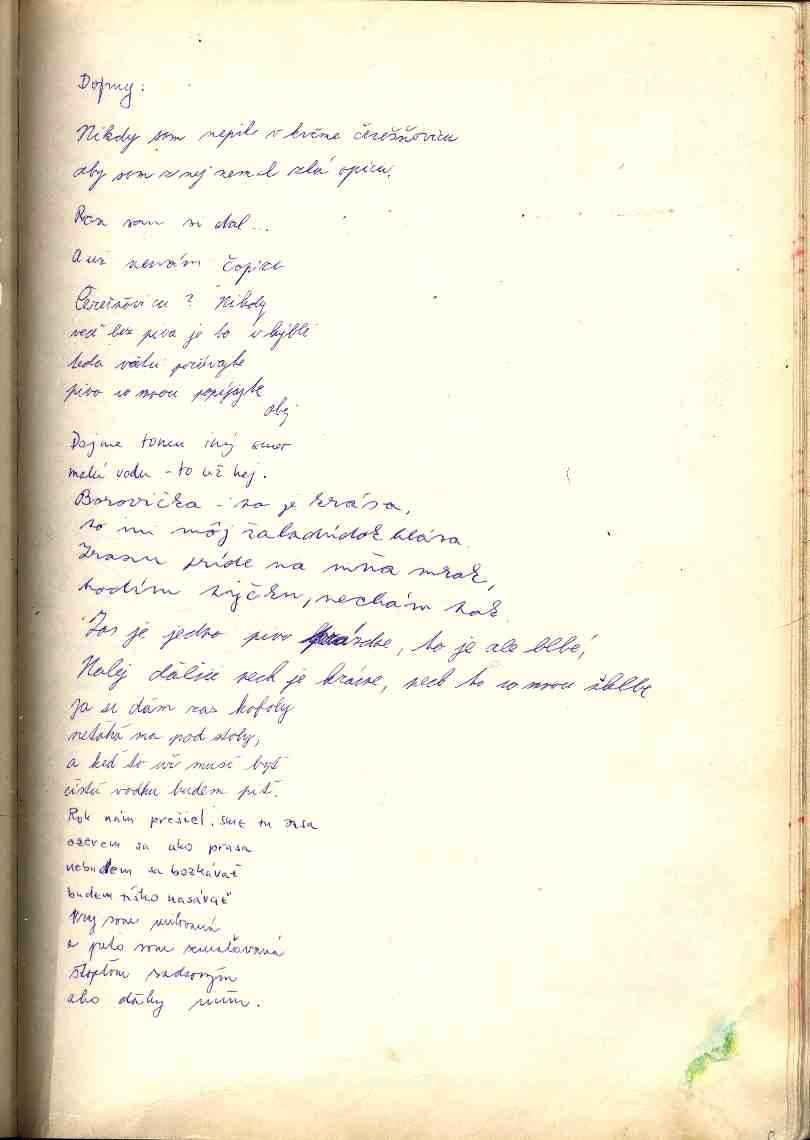 Dojmy:
Nikdy som nepil v krčme čerešňovicu
aby som z nej nemal zlú opicu.
Raz som si dal...
A už nemám čapicu
Čerešňovicu? Nikdy
veď bez piva je to v kýbli
teda vážte počúvajte
pivo so mnou popíjajte
obj
Dajme tomu iný
mako vodu - to už hej.
Borovička - to je krása,
to mi môj žalúdok hlása.
Zrazu príde na mňa mrak,
hodím tyčku, nechám tak.
Zas je jedno pivo prázdne, to je ale blbé,
Nalej ďalšie nech je krásne, nech to so mnou žblbe
Ja si dám zas kofoly
neťahá ma pod stoly,
a keď to už musí byť
čistú vodku budem piť.
Rok nám prešiel, sme tu zasa
ožerem sa ako prasa
nebudem sa bozkávať
budem tíško nasávať
som
a preto som
Štoplom
ako dáky